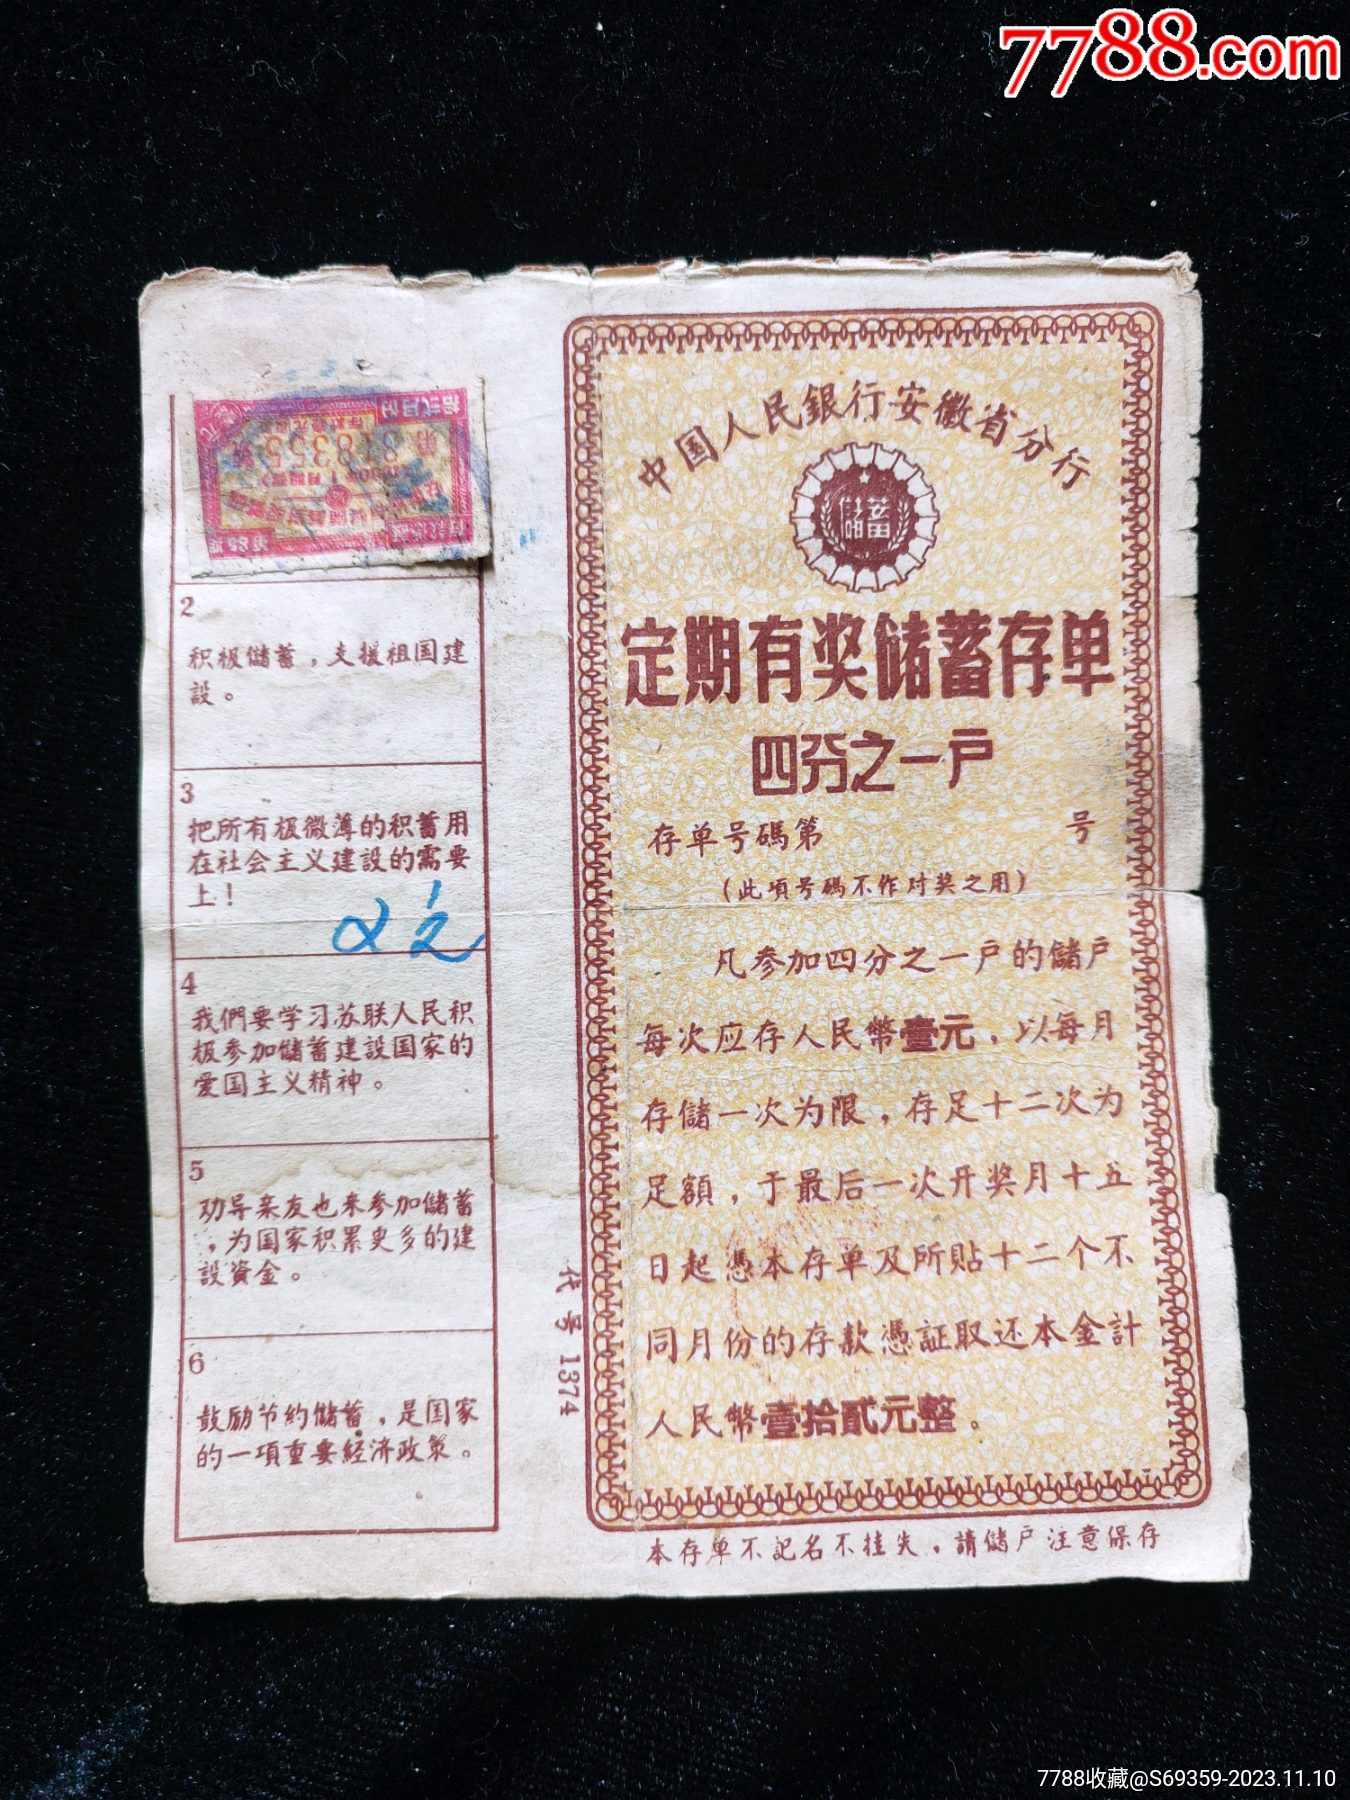 7788.com
拾弍月份
318355
第85組
2
积极儲蓄，支援祖国建
設。
3
把所有极微薄的积蓄用
在社会主义建設的需要
上！
4
我們要学习苏联人民积
极参加儲蓄建設国家的
爱国主义精神。
5
劝导亲友也来参加儲蓄
，为国家积累更多的建
設資金。
6
鼓励节約儲蓄，是国家
的一項重要経济政策。
代号1374
中国人民銀行安徽省分行
儲蓄
定期有奖儲蓄存单
四分之一戶
存单号碼第 号
(此項号碼不作对奖之用)
凡参加四分之一戶的儲戶
每次应存人民幣壹元，以每月
存儲一次为限，存足十二次为
足額，于最后一次开奖月十五
日起憑本存单及所貼十二个不
同月份的存款憑証取还本金計
人民幣壹拾貳元整。
本存单不記名不挂失，請儲戶注意保存
7788收藏@S69359-2023.11.10